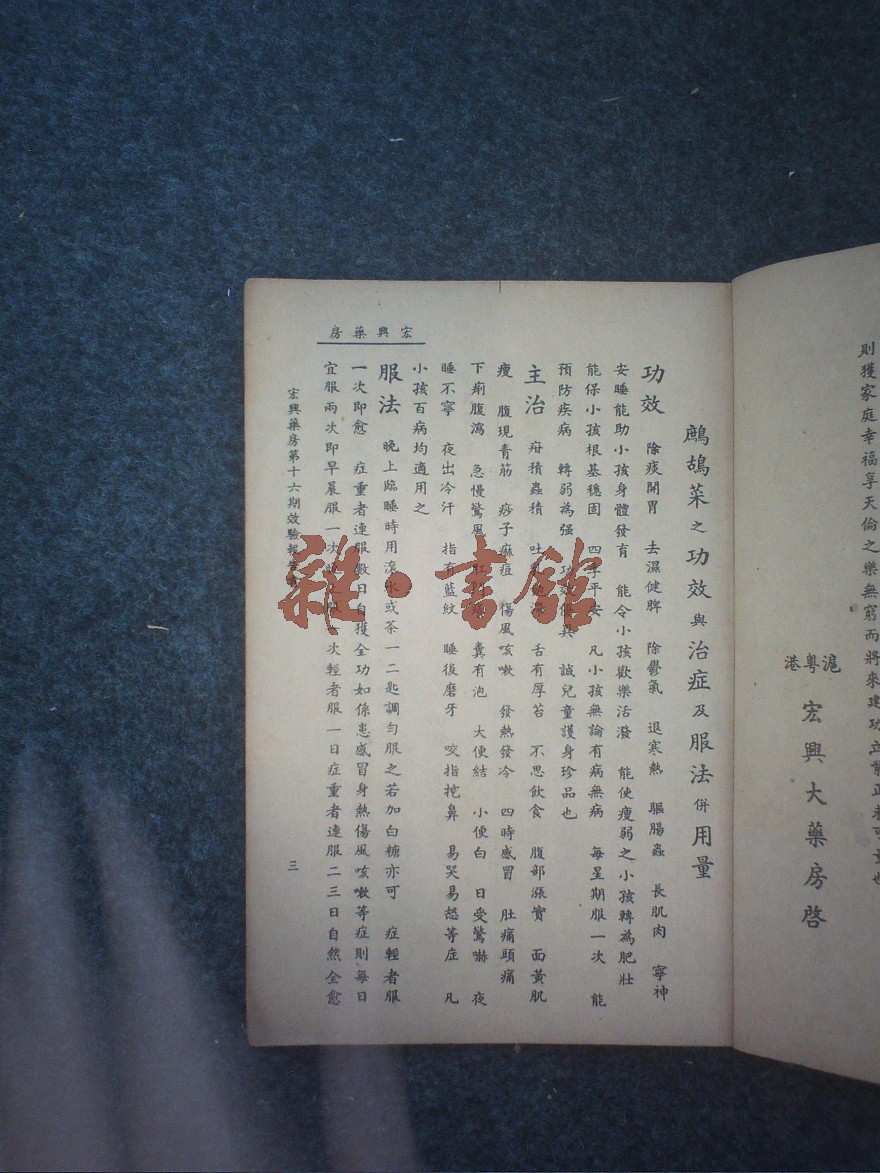 則獲家庭幸福享天倫之樂無窮而將來建功立業正未可量也
滬粵港
宏興大藥房啓
鷓鴣菜之功效與治症及服法併用量
功效 除痰開胃 去濕健脾 除鬱氣 退寒熱 驅腸蟲 長肌肉 寧神
安睡能助小孩身體發育 能令小孩歡樂活潑 能使瘦弱之小孩轉為肥壯
能保小孩根基穩固 四季平安 凡小孩無論有病無病 每星期服一次 能
預防疾病 轉弱為强 功效 誠兒童護身珍品也
主治 疳積蟲積 吐 舌有厚苔 不思飲食 腹部漲實 面黃肌
瘦 腹現青筋 痧子痲痘 傷風咳嗽 發熱發冷 四時感冒 肚痛頭痛
下痢腹瀉 急慢驚風 糞有泡 大便結 小便白 日受驚嚇 夜
睡不寧 夜出冷汗 指有藍紋 睡後磨牙 咬指挖鼻 易哭易怒等症 凡
小孩百病均適用之
服法 晚上臨睡時用滾水或茶一二匙調勻服之若加白糖亦可 症輕者服
一次即愈 症重者連服數日自獲全功如係患感冒身熱傷風咳嗽等症則每日
宜服兩次即早晨服一次 一次輕者服一日症重者連服二三日自然全愈
宏興藥房
宏興藥房第十六期效驗報
三
雜·書館